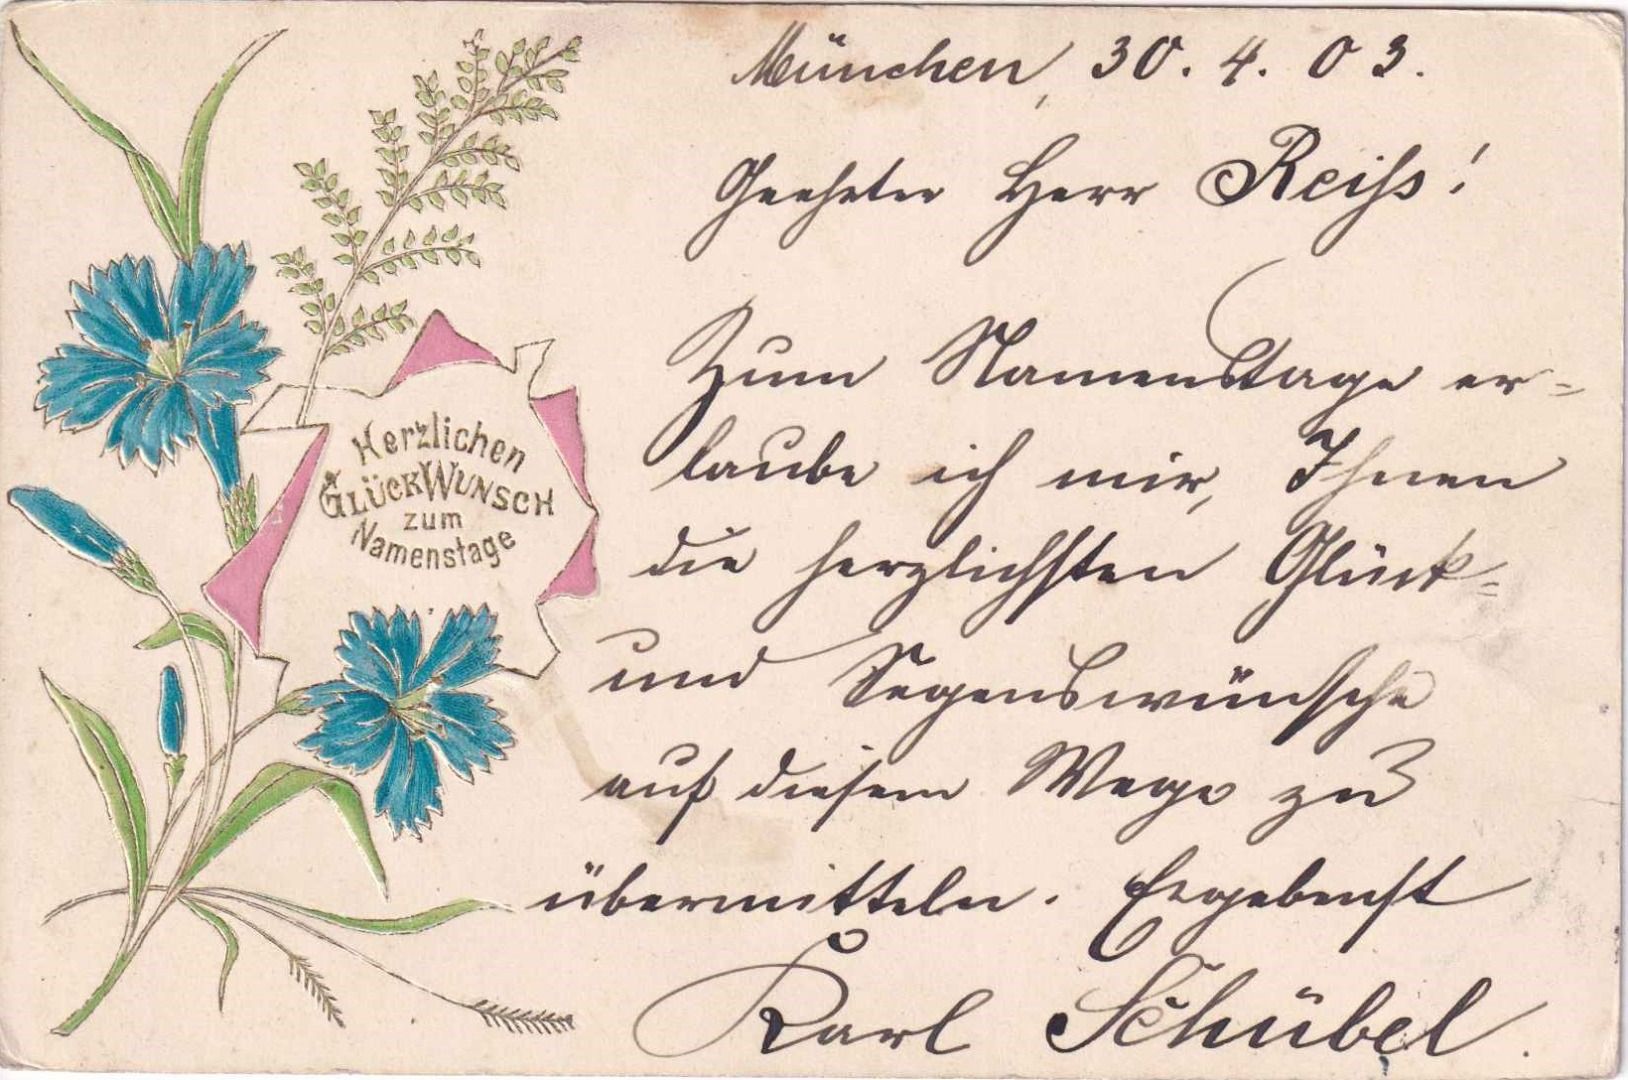 Herzlichen
GLÜCKWUNSCH
zum
Namenstage
München, 30. 4. 03.
Geehrter Herr Reiß!
Zum Namenstage er=
laube ich mir, Ihnen
die herzlichsten Glück=
und Segenswünsche
auf diesem Wege zu
übermitteln. Ergebenst
Karl Schübel.